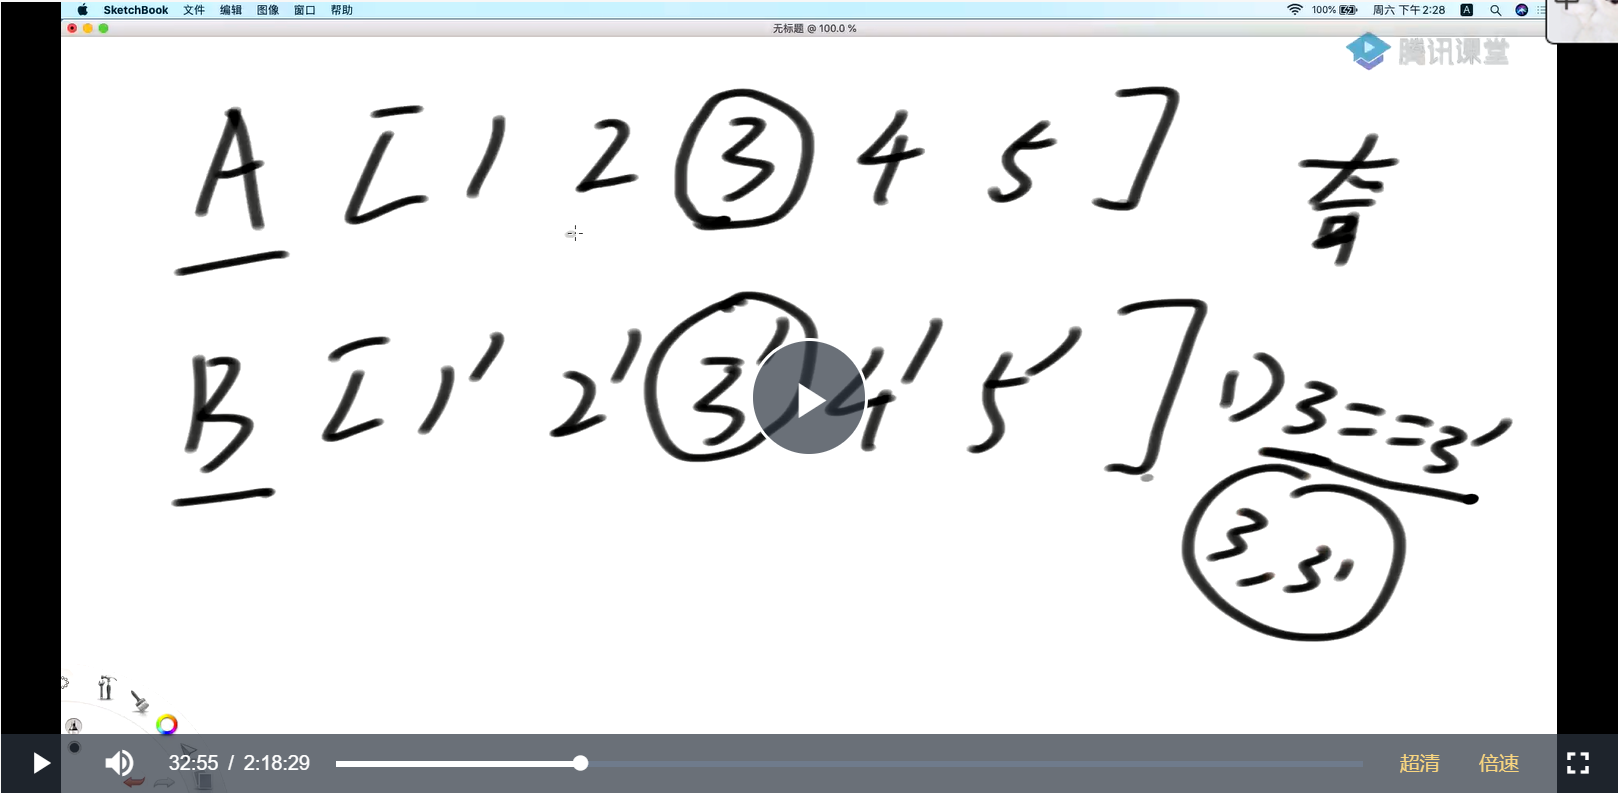 SketchBook 文件 编辑 图像 窗口 帮助 100% 周六 下午2:28 A
无标题 @ 100.0 %
腾讯课堂
A [ 1 2 3 4 5 ]
B [ 1' 2' 3' 4' 5' ] 1) 3 == 3'
3, 3'
32:55 / 2:18:29 超清 倍速